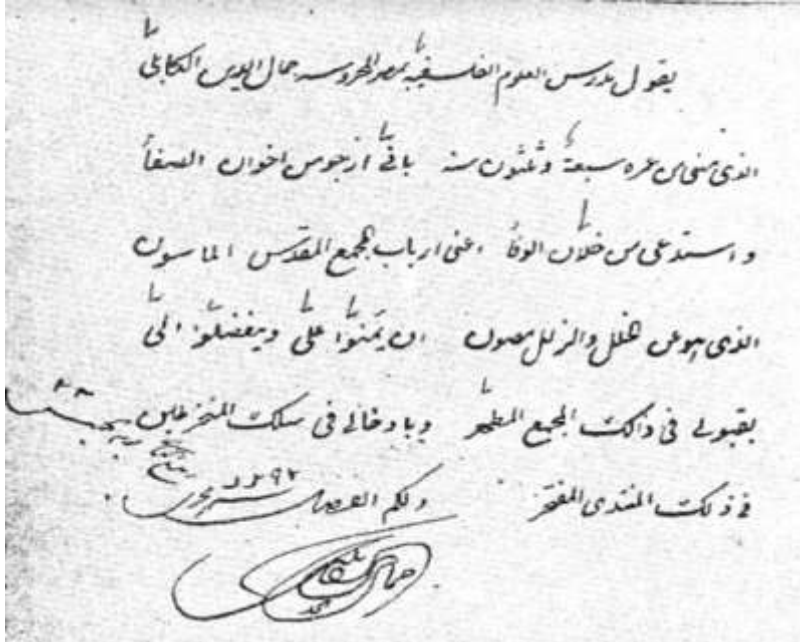 يقول مدرس العلوم الفلسفية بمصر المحروسه جمال الدين الكابلي
الذي مضى من عمره سبعة وثلثون سنه بانّي ارجو من اخوان الصفا
واستدعي من خلان الوفا اعني ارباب المجمع المقدس الماسون
الذي هو عن الخلل والزلل مصون ان يمنّوا علىّ ويتفضلوا الىّ
بقبولي في ذالك المجمع المطهر وبادخالي في سلك المنخرطين
في ذلك المنتدى المفتخر ولكم الفضل
ربيع الثاني
يوم الخميس ٢٢
سنه ١٢٩٢
جمال الدين